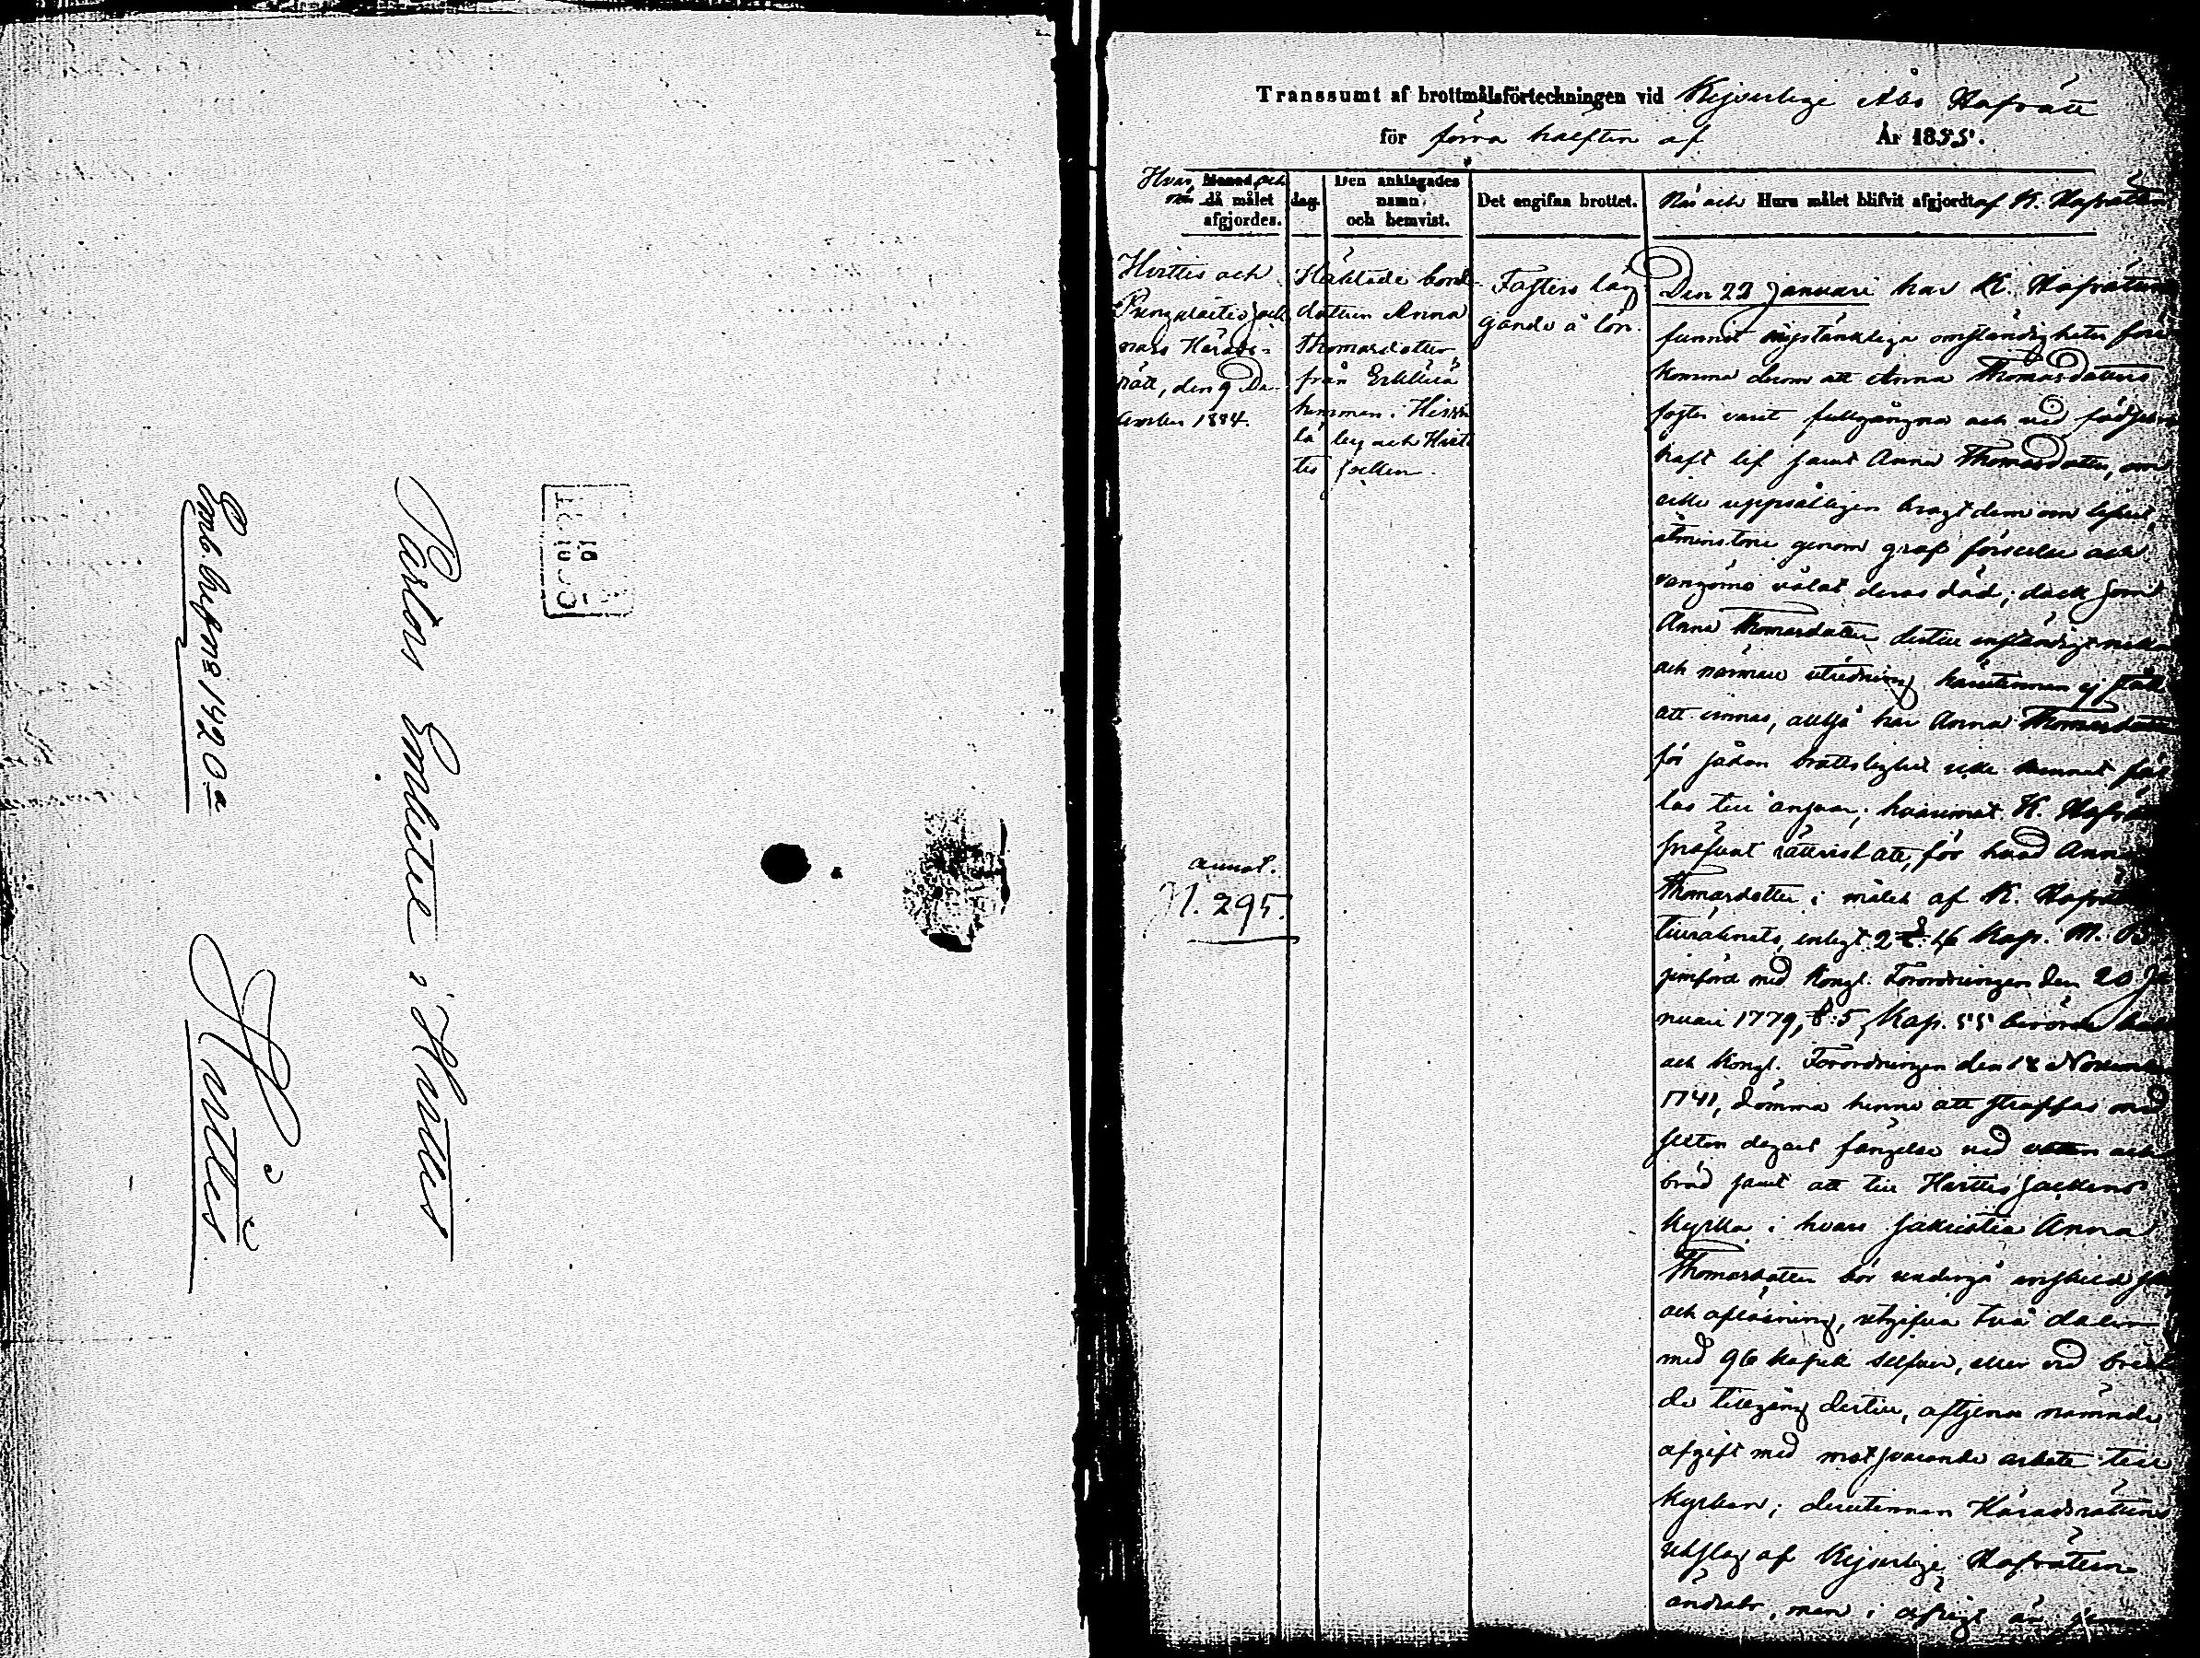 Pastors Embetet i Hvittis
Emb. bref № 1420 a
Hvittis
Transsumt af brottmålsförteckningen vid Kejserlige Åbo Hofrätt
för förra hälften af År 1855.
Hvar, Månad och
när då målet
afgjordes.
dag.
Den anklagades
namn
och hemvist.
Det angifna brottet.
När och Huru målet blifvit afgjordt af K. Hofrätten
Hvittis och
Häradsrätt, den 9 De-
cember 1854.
annot.
N. 295.
Häktade bonde
dottren Anna
Thomasdotter
från Erkkilä
hemman i
by och Hvit
tis socken.
Fosters läg
gande å lön.
Den 22 Januari har K. Hofrätten
funnit misstänkliga omständigheter före
komma derom att Anna Thomasdotters
foster varit fullgångna och vid födseln
haft lif samt Anna Thomasdotter, om
icke uppsåtligen bragt dem om lifvet,
åtminstone genom grof förseelse och
vangömo vålat deras död; dock som
Anna Thomasdotter dertill enständigt nekat
och närmare utredning härutinnan ej stått
att vinnas, alltså har Anna Thomasdotter
för sådan brottslighet icke kunnat fäl
las till ansvar; hvaremot K. Hofrätten
pröfvat rättvist att, för hvad Anna
Thomasdotter i målet af K. Hofrätten
tillräknats, enligt 2 §: 16 Kap. M. B.
jemförd med Kongl. Förordningen den 20 Ja
nuari 1779, §: 5, Kap. 55 berörde balk
och Kongl. Förordningen den 18 November
1741, döma henne att straffas med
dagars fängelse vid vatten och
bröd samt att till Hvittis sockens
kyrka i hvars sakristia Anna
Thomasdotter bör undergå enskild skrift
och aflösning, utgifva två daler
med 96 kopek silfver, eller vid bristan
de tillgång dertill, aftjena nämnde
afgift med motsvarande arbete till
kyrkan; derutinnan Häradsrättens
utslag af Kejserlige Hofrätten
ändrats, men i öfrigt är